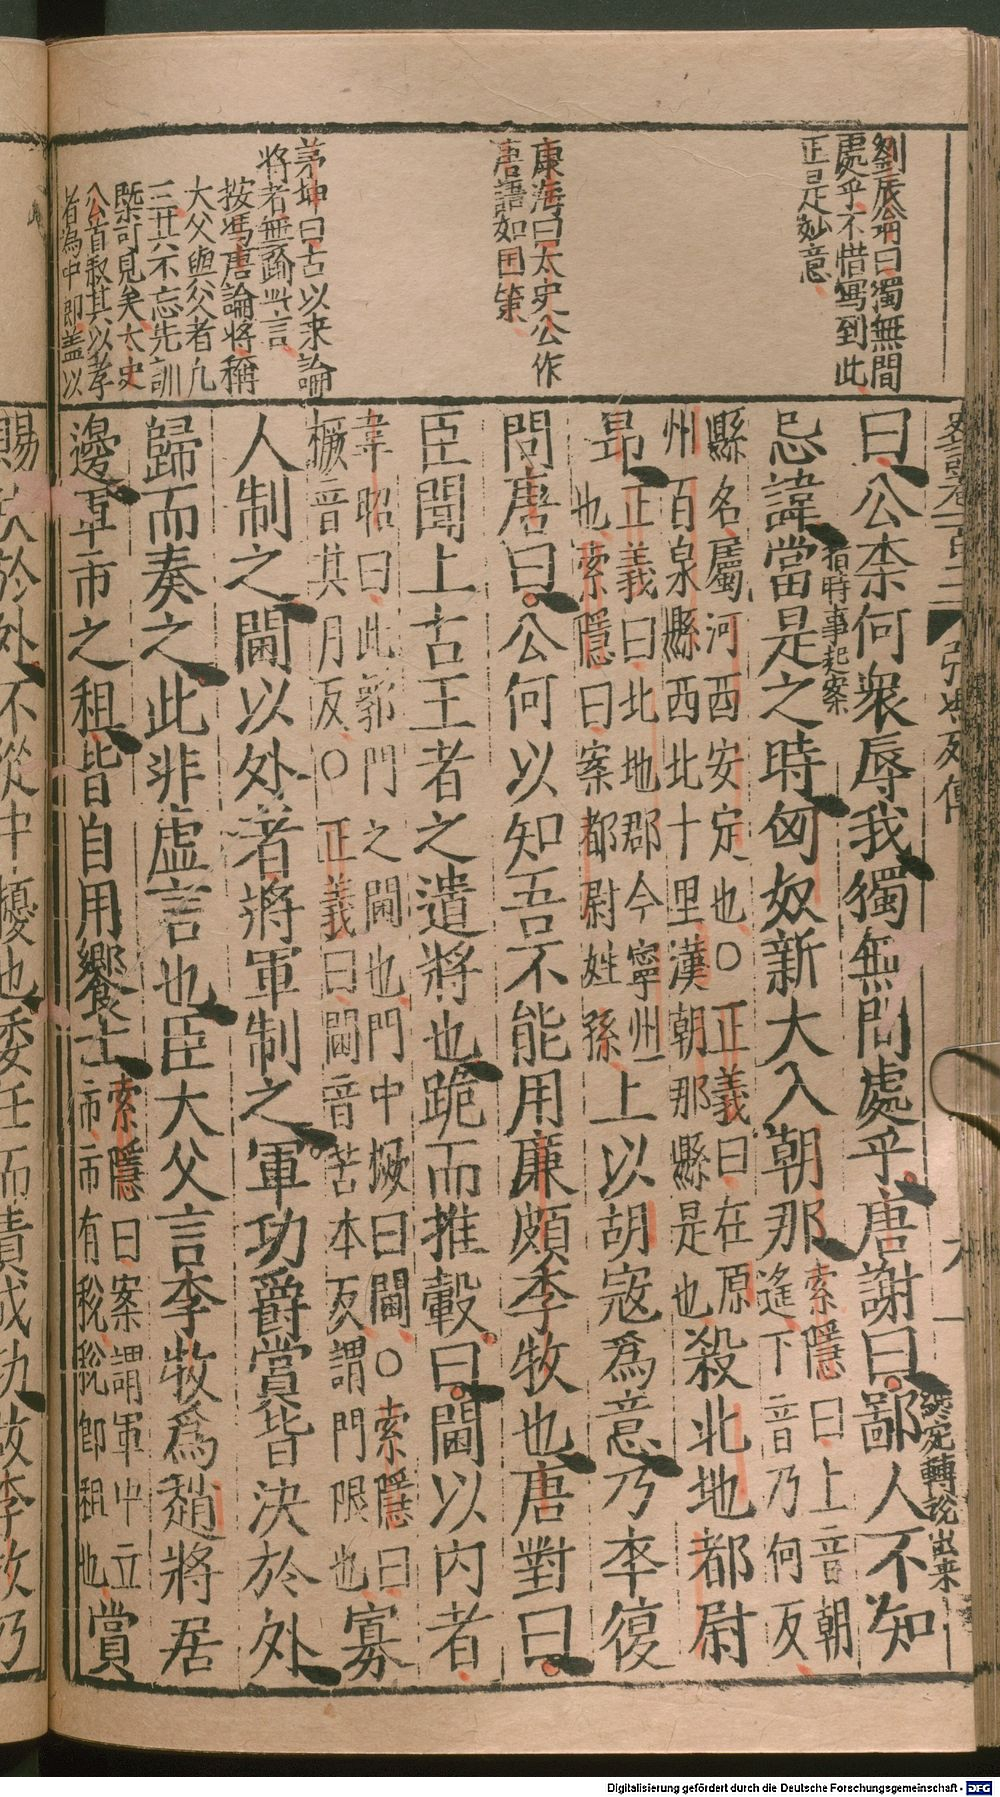 劉辰翁曰獨無間
處乎不惜寫到此
正是妙意
康海曰太史公作
唐語如国策
茅坤曰古以来論
将者無踰此言
按馮唐論将稱
大父與父者凡
三廿六不忘先訓
槩可見矣太史
公首叙其以孝
者為中郎盖以
曰公柰何衆辱我獨無間處乎唐謝曰鄙人不知
忌諱當是之時匈奴新大入朝那
索隱曰上音朝
遙下音乃何反
縣名屬河西安定也○正義曰在原
州百泉縣西北十里漢朝那縣是也
殺北地都尉
卬
正義曰北地郡今寧州
也索隱曰案都尉姓孫
上以胡寇爲意乃卒復
問唐曰公何以知吾不能用廉頗李牧也唐對曰
臣聞上古王者之遣將也跪而推轂曰閫以内者
韋昭曰此郭門之閫也門中橛曰閫○索隱曰
橛音其月反○正義曰閫音苦本反謂門限也
寡
人制之閫以外者將軍制之軍功爵賞皆決於外
歸而奏之此非虛言也臣大父言李牧爲趙將居
邊軍市之租皆自用饗士
索隱曰案謂軍中立
市市有稅稅即租也
賞
猶時事起案
張馮列傳
賜決於外不從中擾也委任而責成功故李牧乃
Digitalisierung gefördert durch die Deutsche Forschungsgemeinschaft - DFG